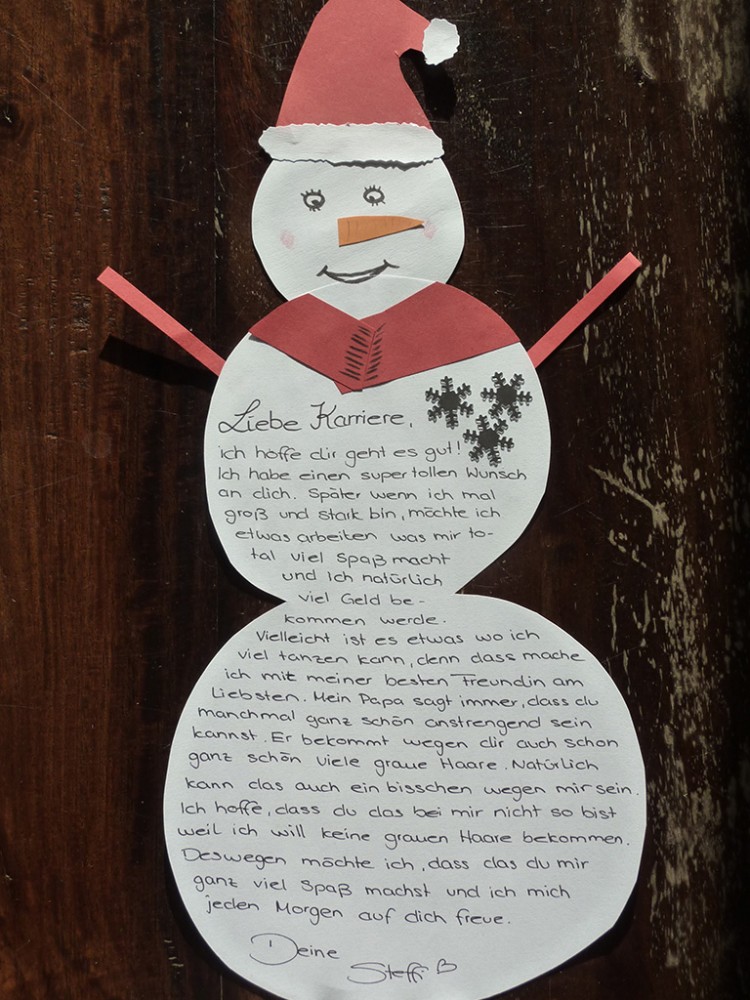 Liebe Karriere,
ich hoffe dir geht es gut!
Ich habe einen super tollen Wunsch
an dich. Später wenn ich mal
groß und stark bin, möchte ich
etwas arbeiten was mir to-
tal viel Spaß macht
und Ich natürlich
viel Geld be-
kommen werde.
Vielleicht ist es etwas wo ich
viel tanzen kann, denn dass mache
ich mit meiner besten Freundin am
Liebsten. Mein Papa sagt immer, dass du
manchmal ganz schön anstrengend sein
kannst. Er bekommt wegen dir auch schon
ganz schön viele graue Haare. Natürlich
kann das auch ein bisschen wegen mir sein.
Ich hoffe, dass du das bei mir nicht so bist
weil ich will keine grauen Haare bekommen.
Deswegen möchte ich, dass das du mir
ganz viel Spaß machst und ich mich
jeden Morgen auf dich freue.
Deine
Steffi